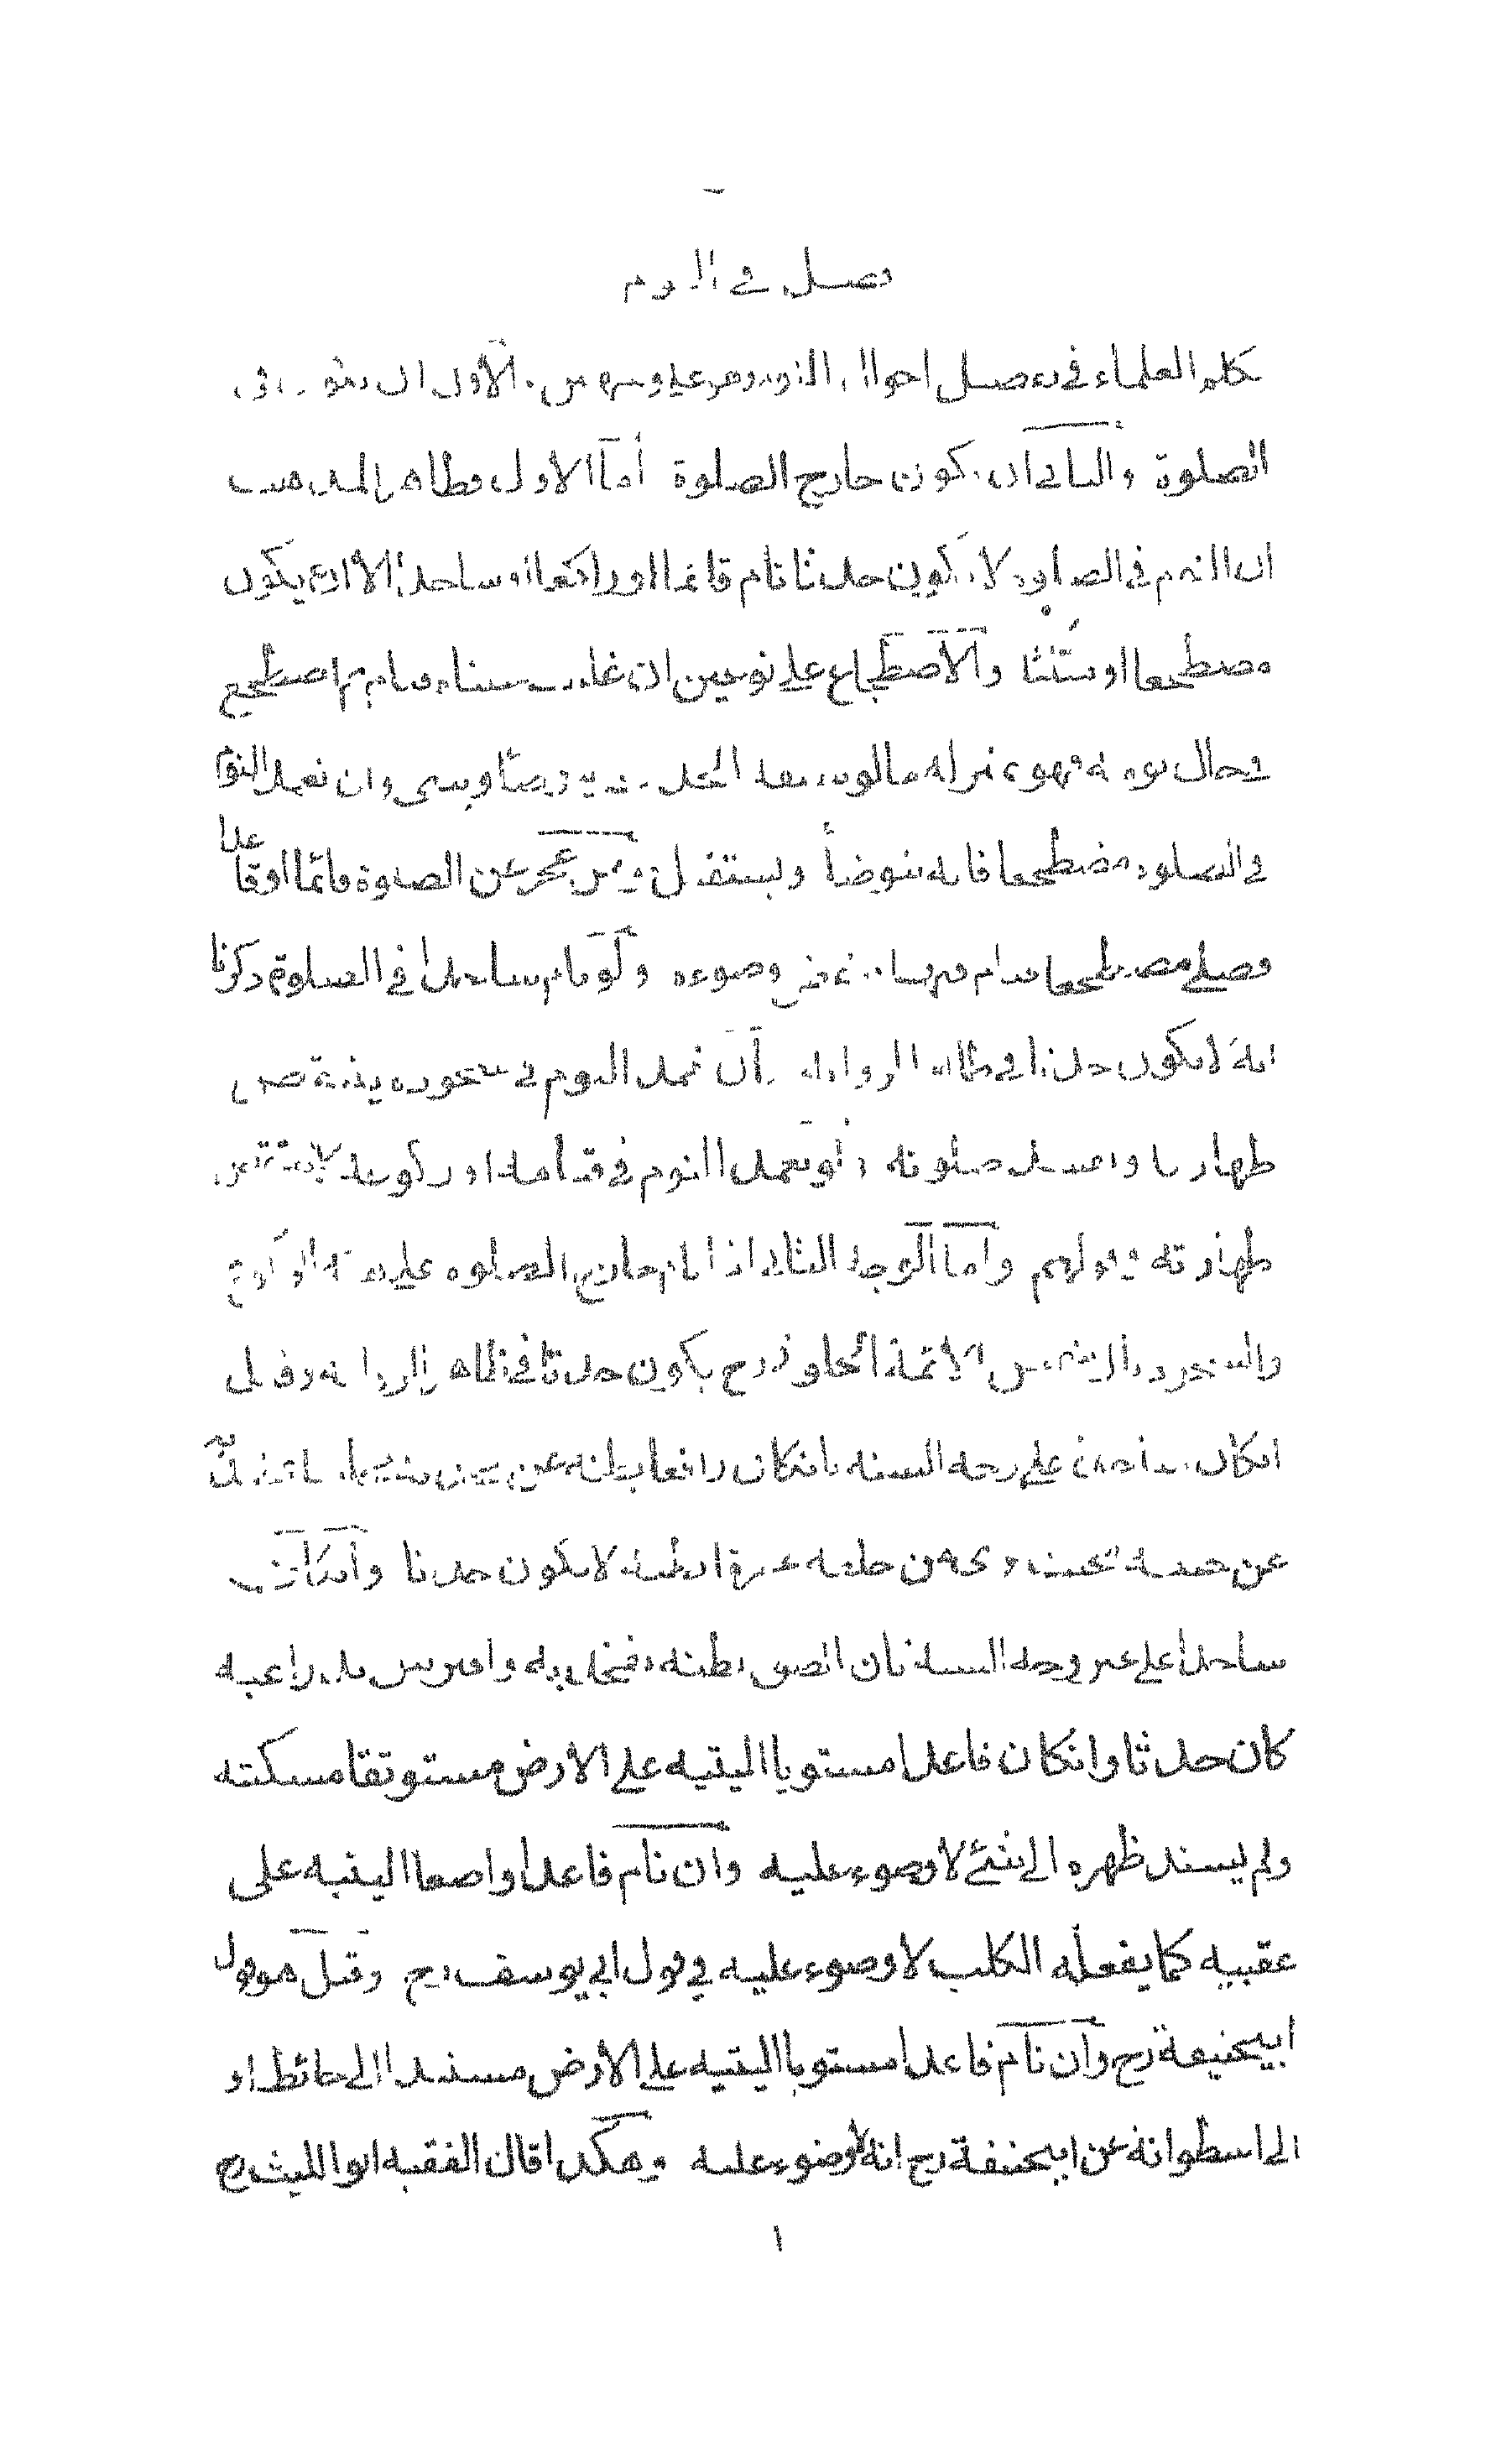 فصل في النوم
تكلم العلماء في تفصيل احوال النوم وهو على وجهين الأول ان يكون في
الصلوة والثاني ان يكون خارج الصلوة أما الاول فظاهر المذهب
ان النوم في الصلوة لا يكون حدثا نام قائما او راكعا او ساجدا الا ان يكون
مضطجعا او متكئا والاضطجاع على نوعين ان غلبت عيناه فنام ثم اضطجع
في حال نومه فهو بمنزلة مالو سبقه الحدث يتوضأ ويبني وان تعمد النوم
في الصلوة مضطجعا فانه يتوضأ ويستقبل ومن عجز عن الصلوة قائما او قاعدا
فصلى مضطجعا فنام فيها ينتقض وضوءه ولو نام ساجدا في الصلوة ذكرنا
انه لا يكون حدثا في ظاهر الرواية وان تعمد النوم في سجوده ينتقض
طهارته وتفسد صلوته ولو تعمد النوم في قيامه او ركوعه لا ينتقض
طهارته في قولهم وأما الوجه الثاني اذا نام خارج الصلوة على هيئة الركوع
والسجود قال شمس الائمة الحلواني رح يكون حدثا في ظاهر الرواية وقيل
انكان ساجدا على وجه السنة بانكان رافعا بطنه عن فخذيه
عن جنبيه بحيث يرى من خلفه عفرة ابطيه لا يكون حدثا وانكان
ساجدا على غير وجه السنة بان الصق بطنه بفخذيه وافترش ذراعيه
كان حدثا وانكان قاعدا مستويا اليتيه على الارض مستوثقا مسكته
ولم يسند ظهره الى شئ لا وضوء عليه وان نام قاعدا واضعا اليتيه على
عقبيه كما يفعله الكلب لا وضوء عليه في قول ابي يوسف رح وقيل هو قول
ابيحنيفة رح وان نام قاعدا مستويا اليتيه على الارض مستندا الى حائط او
الى اسطوانة عن ابيحنيفة رح انه لا وضوء عليه وهكذا قال الفقيه ابو الليث رح
١